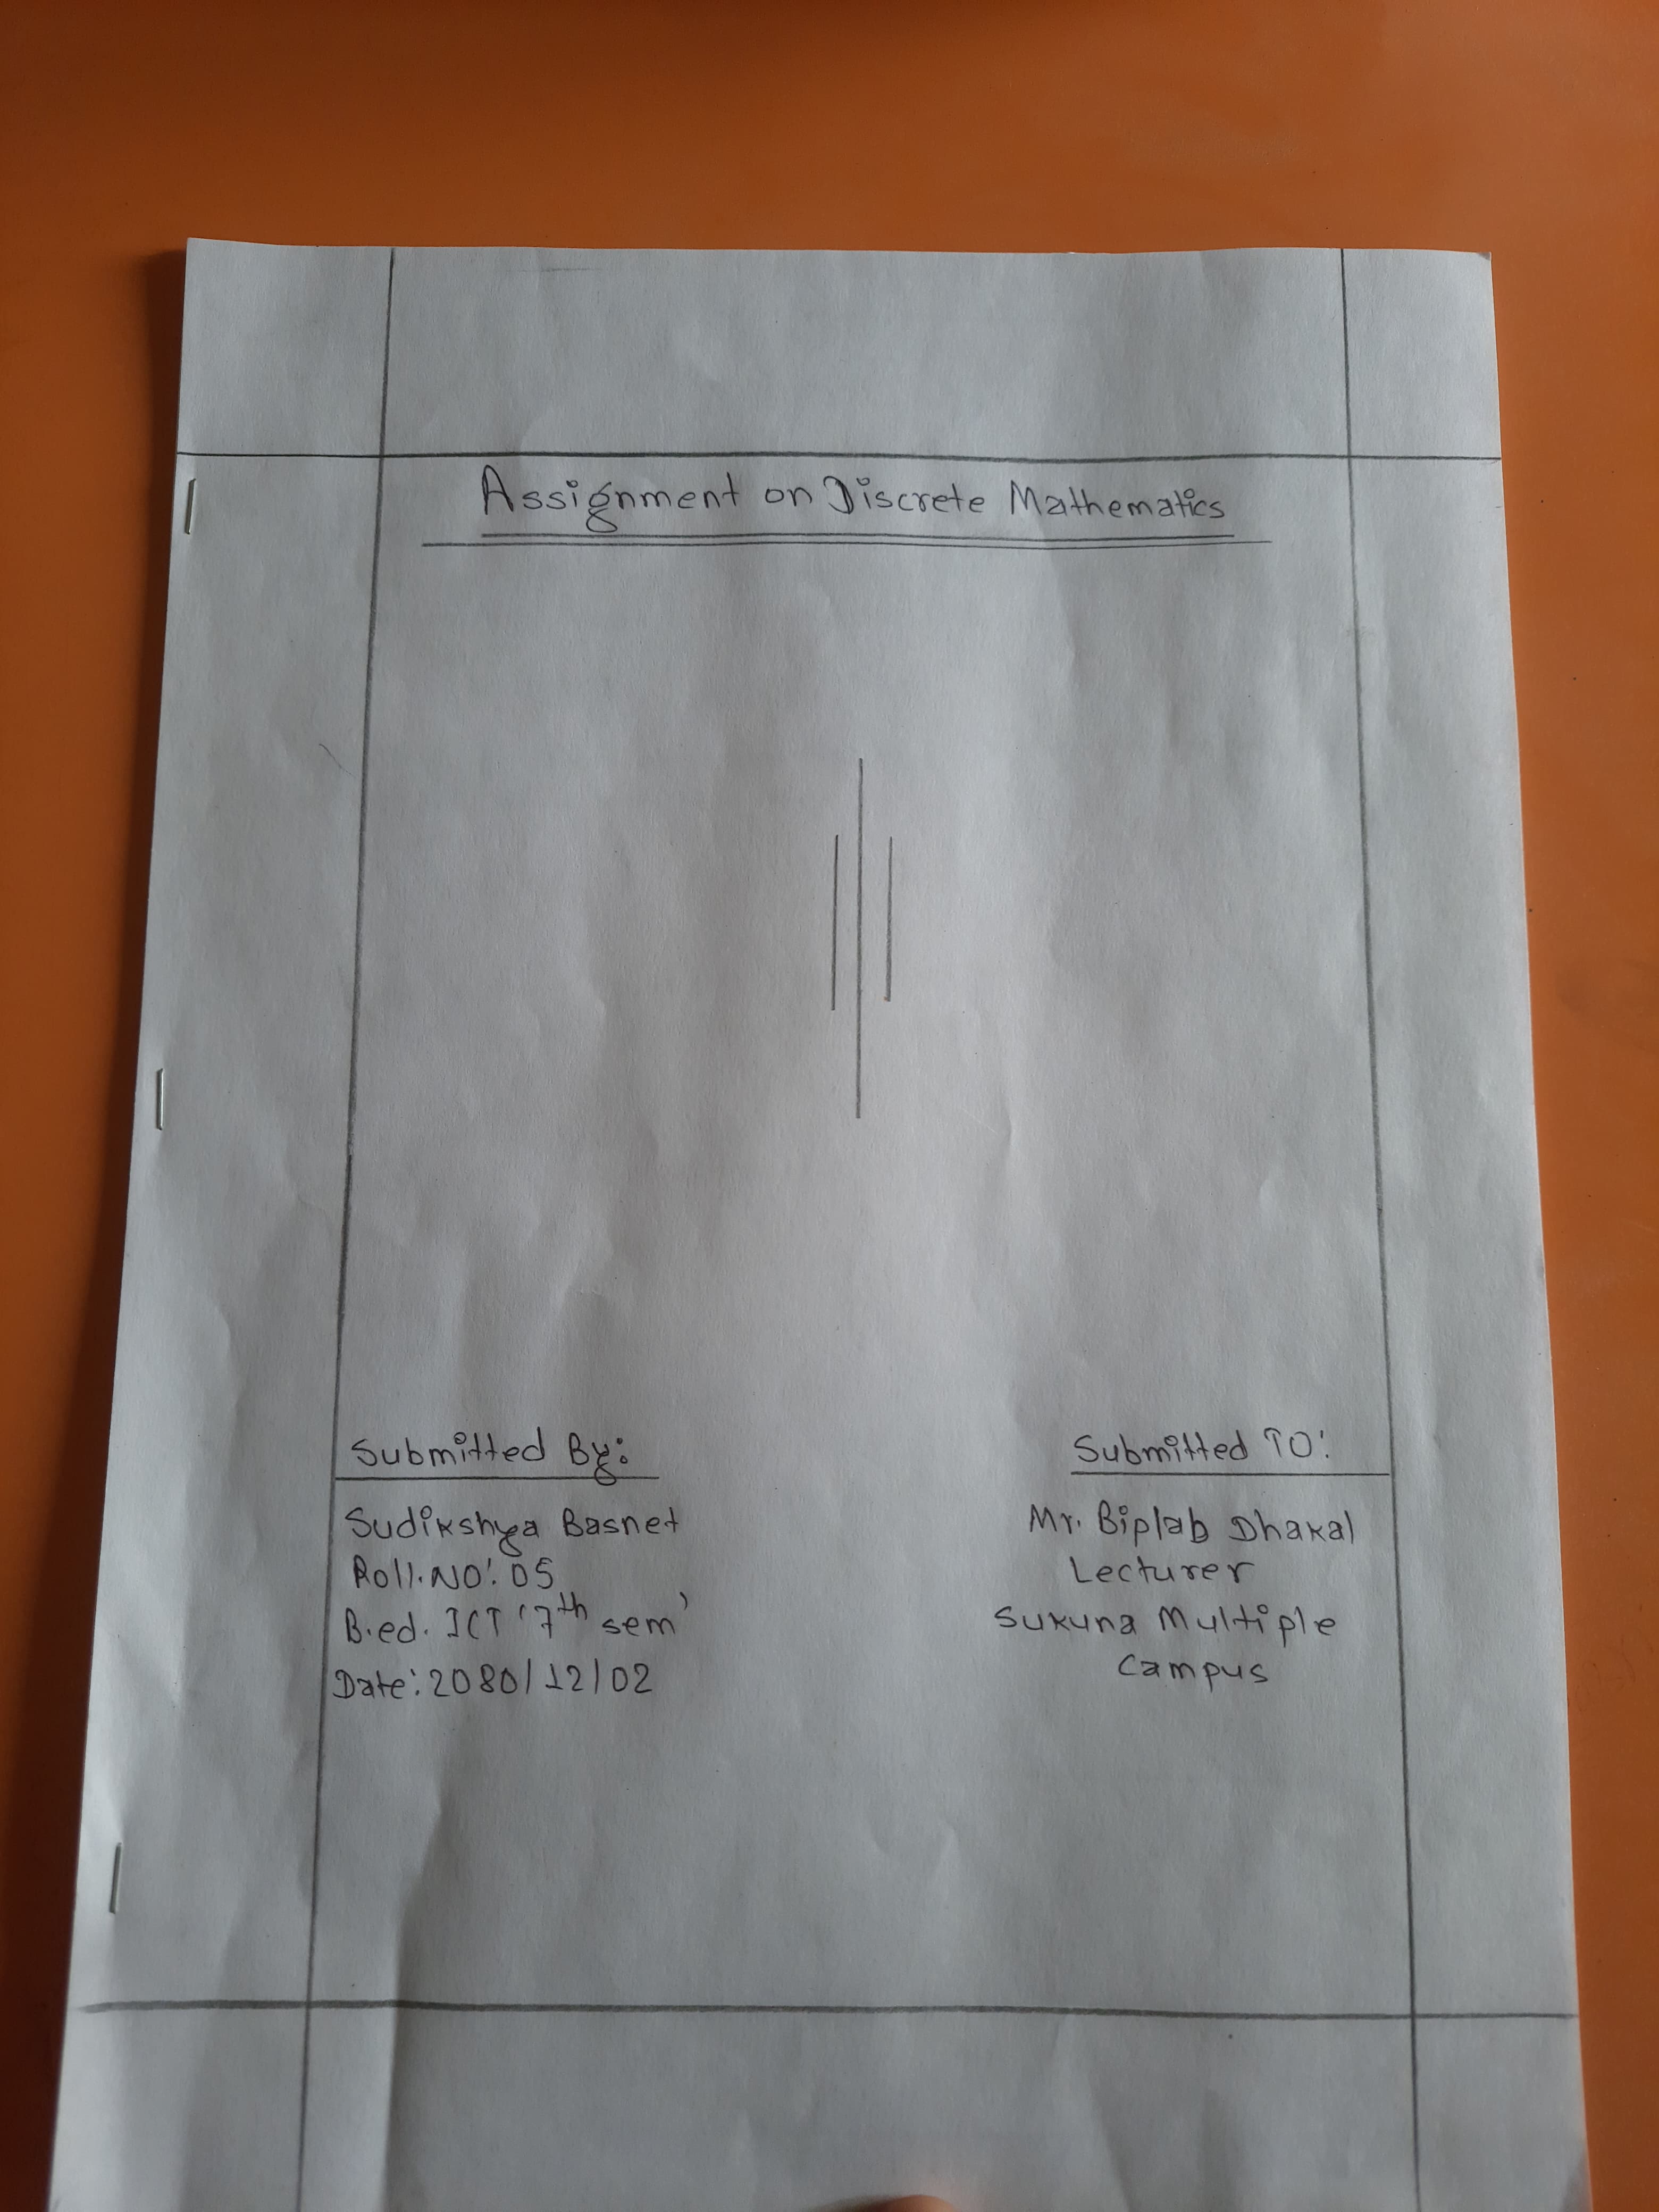 Assignment on Discrete Mathematics
Submitted By:
Sudikshya Basnet
Roll.NO: 05
B.ed. ICT '7th sem'
Date: 2080/12/02
Submitted TO:
Mr. Biplab Dhakal
Lecturer
Sukuna Multiple
Campus